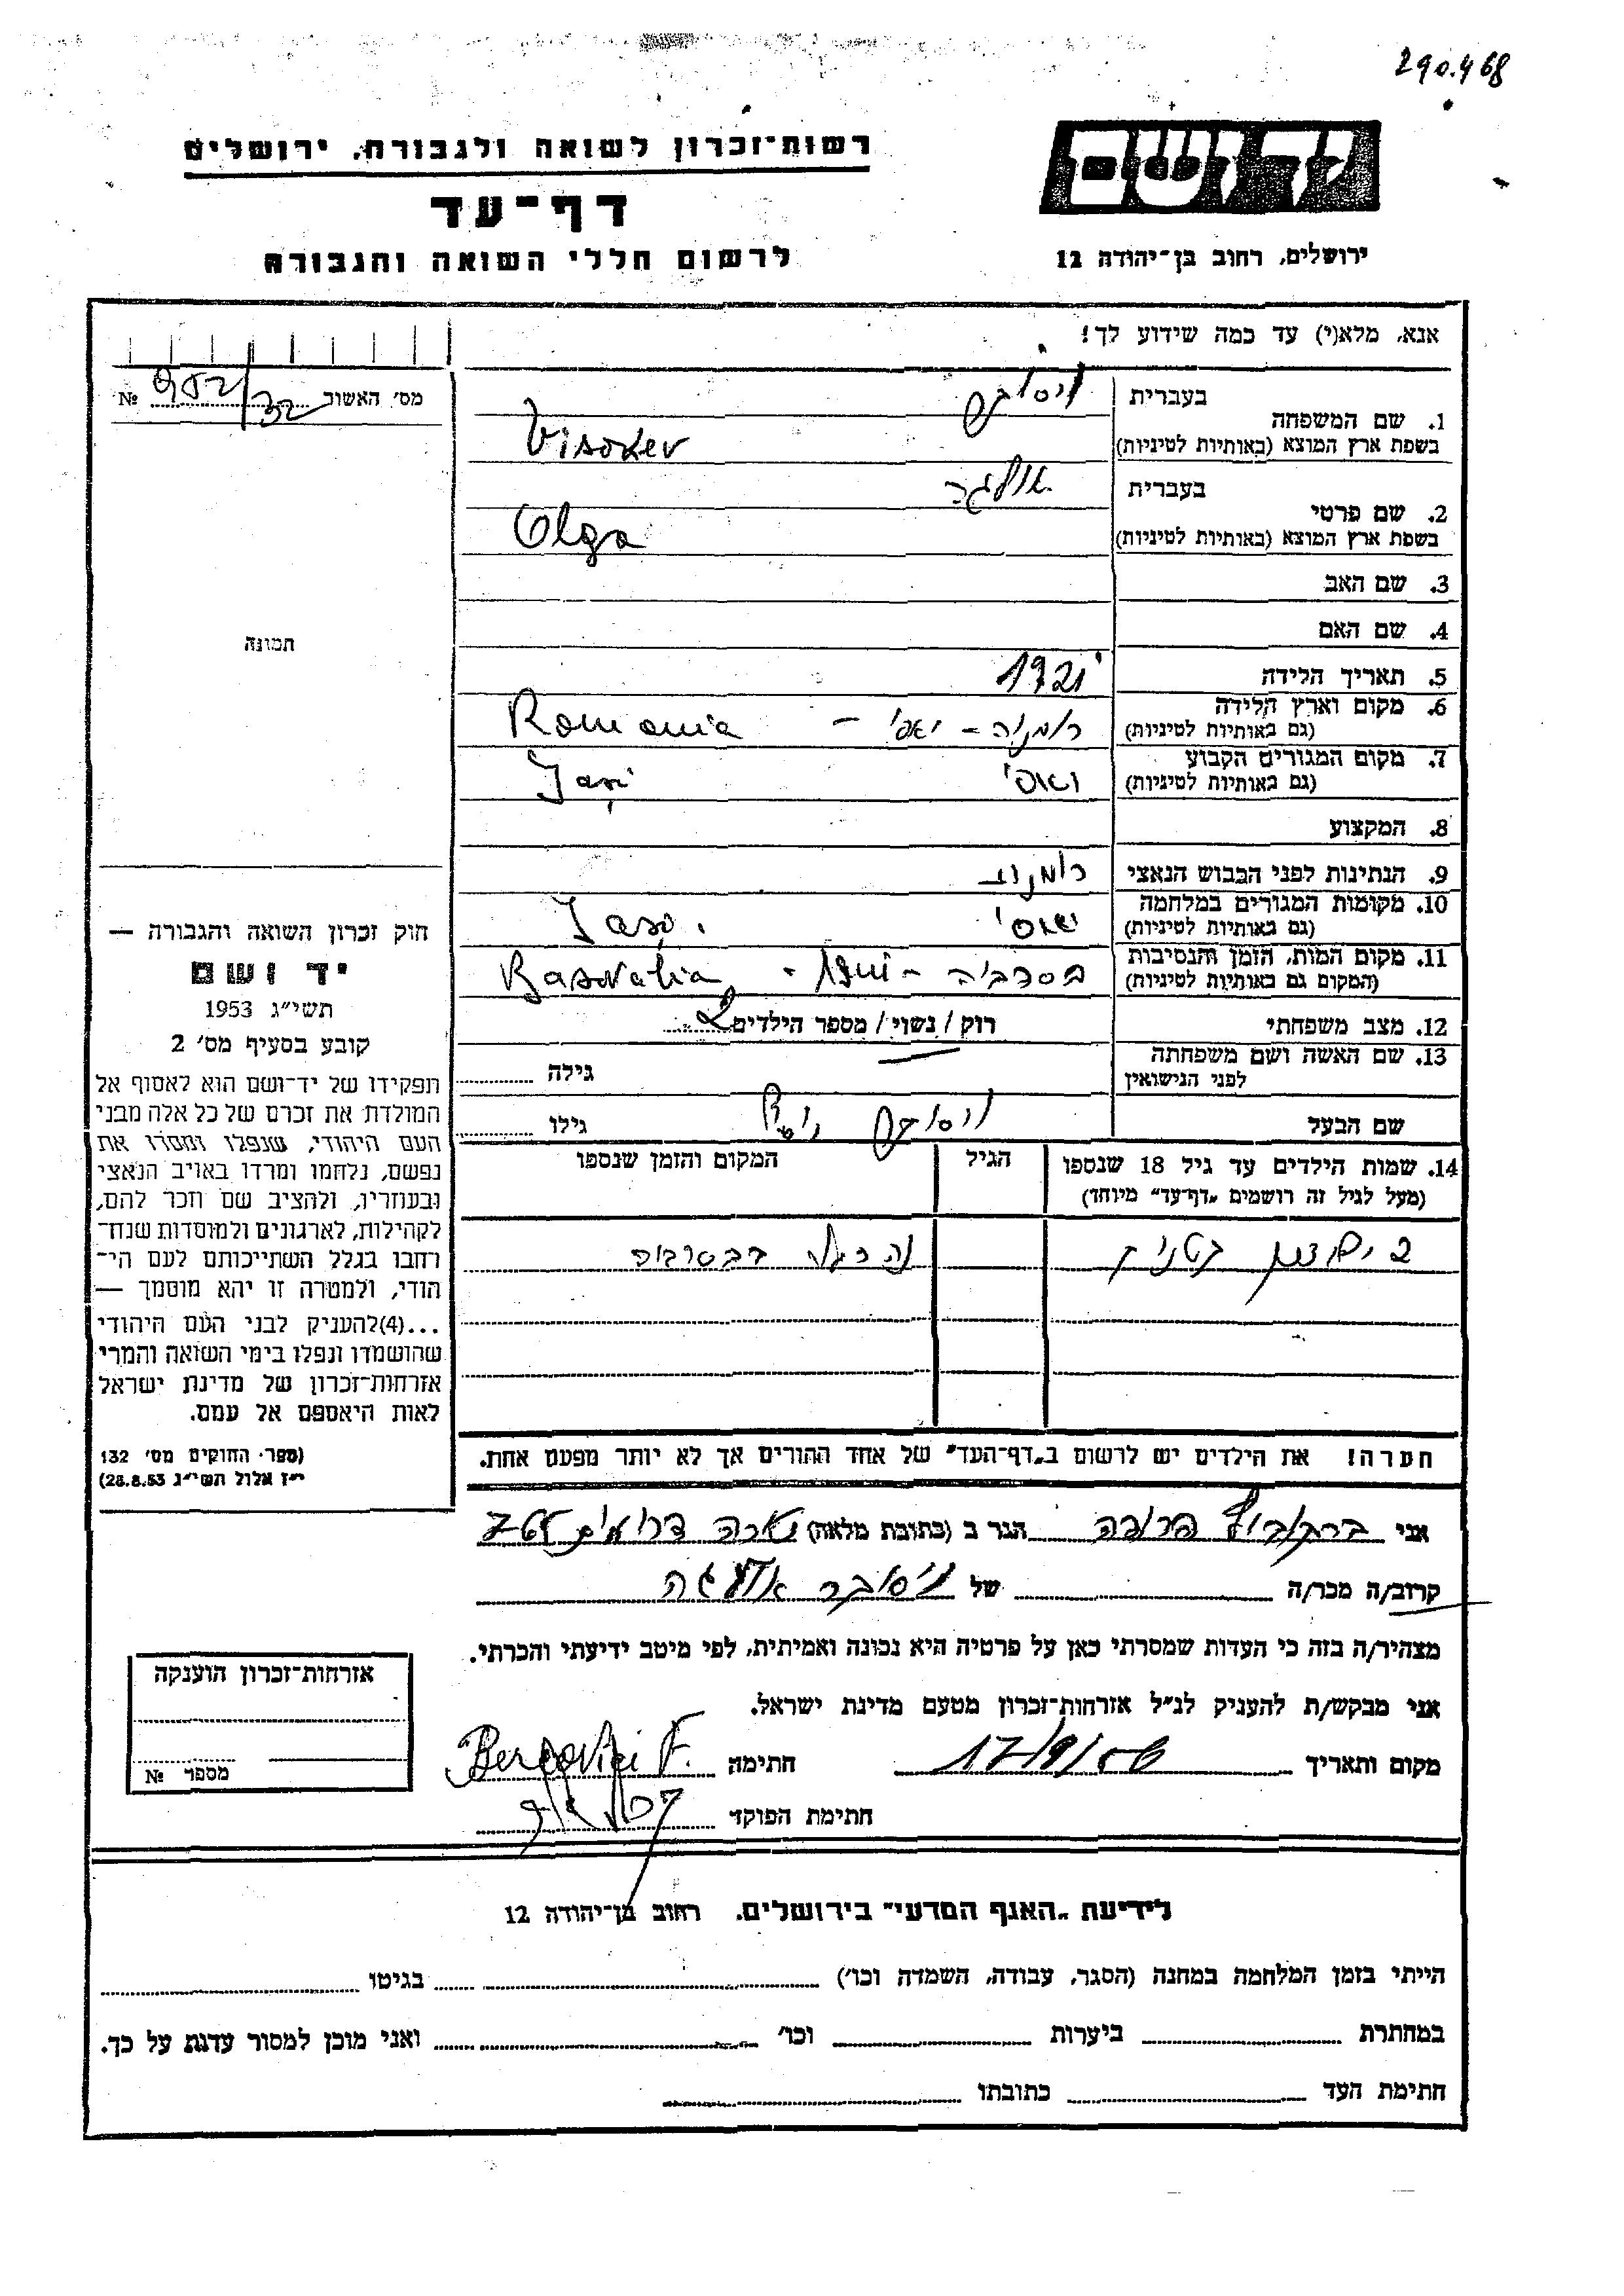 290.468
רשות-זכרון לשואה ולגבורה, ירושלים
יד ושם
דף-עד
לרשום חללי השואה והגבורה
ירושלים, רחוב בן-יהודה 12
אנא, מלא(י) עד כמה שידוע לך!
מס' האשור 952/32 №
1. שם המשפחה
בעברית
בשפת ארץ המוצא (באותיות לטיניות) Visoker
2. שם פרטי
בעברית אולגה
בשפת ארץ המוצא (באותיות לטיניות) Olga
3. שם האב
4. שם האם
תמונה
5. תאריך הלידה 1921
6. מקום וארץ הלידה רומניה - יאסי - Romania
(גם באותיות לטיניות)
7. מקום המגורים הקבוע יאסי Iaşi
(גם באותיות לטיניות)
8. המקצוע
9. הנתינות לפני הכבוש הנאצי
10. מקומות המגורים במלחמה יאסי
(גם באותיות לטיניות)
11. מקום המות, הזמן והנסיבות בסרביה
(המקום גם באותיות לטיניות)
12. מצב משפחתי רוק / נשוי / מספר הילדים 2
13. שם האשה ושם משפחתה גילה
לפני הנישואין
שם הבעל גילו
14. שמות הילדים עד גיל 18 שנספו הגיל המקום והזמן שנספו
(מעל לגיל זה רושמים "דף-עד" מיוחד)
2 ילדים קטנים נהרגו בבסרביה
הערה! את הילדים יש לרשום ב"דף-העד" של אחד ההורים אך לא יותר מפעם אחת.
חוק זכרון השואה והגבורה —
יד ושם
תשי"ג 1953
קובע בסעיף מס' 2
תפקידו של יד-ושם הוא לאסוף אל
המולדת את זכרם של כל אלה מבני
העם היהודי, שנפלו ומסרו את
נפשם, נלחמו ומרדו באויב הנאצי
ובעוזריו, ולהציב שם וזכר להם,
לקהילות, לארגונים ולמוסדות שנח-
רחבו בגלל השתייכותם לעם הי-
הודי, ולמטרה זו יהא מוסמך —
...(4)להעניק לבני העם היהודי
שהושמדו ונפלו בימי השואה והמרי
אזרחות-זכרון של מדינת ישראל
לאות היאספם אל עמם.
(ספר החוקים מס' 132
י"ז אלול תשי"ג 28.8.53)
אני ברקוביץ הגר ב (כתובת מלאה)
קרוב/ה מכר/ה של אולגה
מצהיר/ה בזה כי העדות שמסרתי כאן על פרטיה היא נכונה ואמיתית, לפי מיטב ידיעתי והכרתי.
אני מבקש/ת להעניק לנ"ל אזרחות-זכרון מטעם מדינת ישראל.
מקום ותאריך 17/9/56 חתימה Bercovici F.
חתימת הפוקד
אזרחות-זכרון הוענקה
מספר №
לידיעת "האגף המדעי" בירושלים, רחוב בן-יהודה 12
הייתי בזמן המלחמה במחנה (הסגר, עבודה, השמדה וכו') בגיטו
במחתרת ביערות וכו' ואני מוכן למסור עדות על כך.
חתימת העד כתובתו